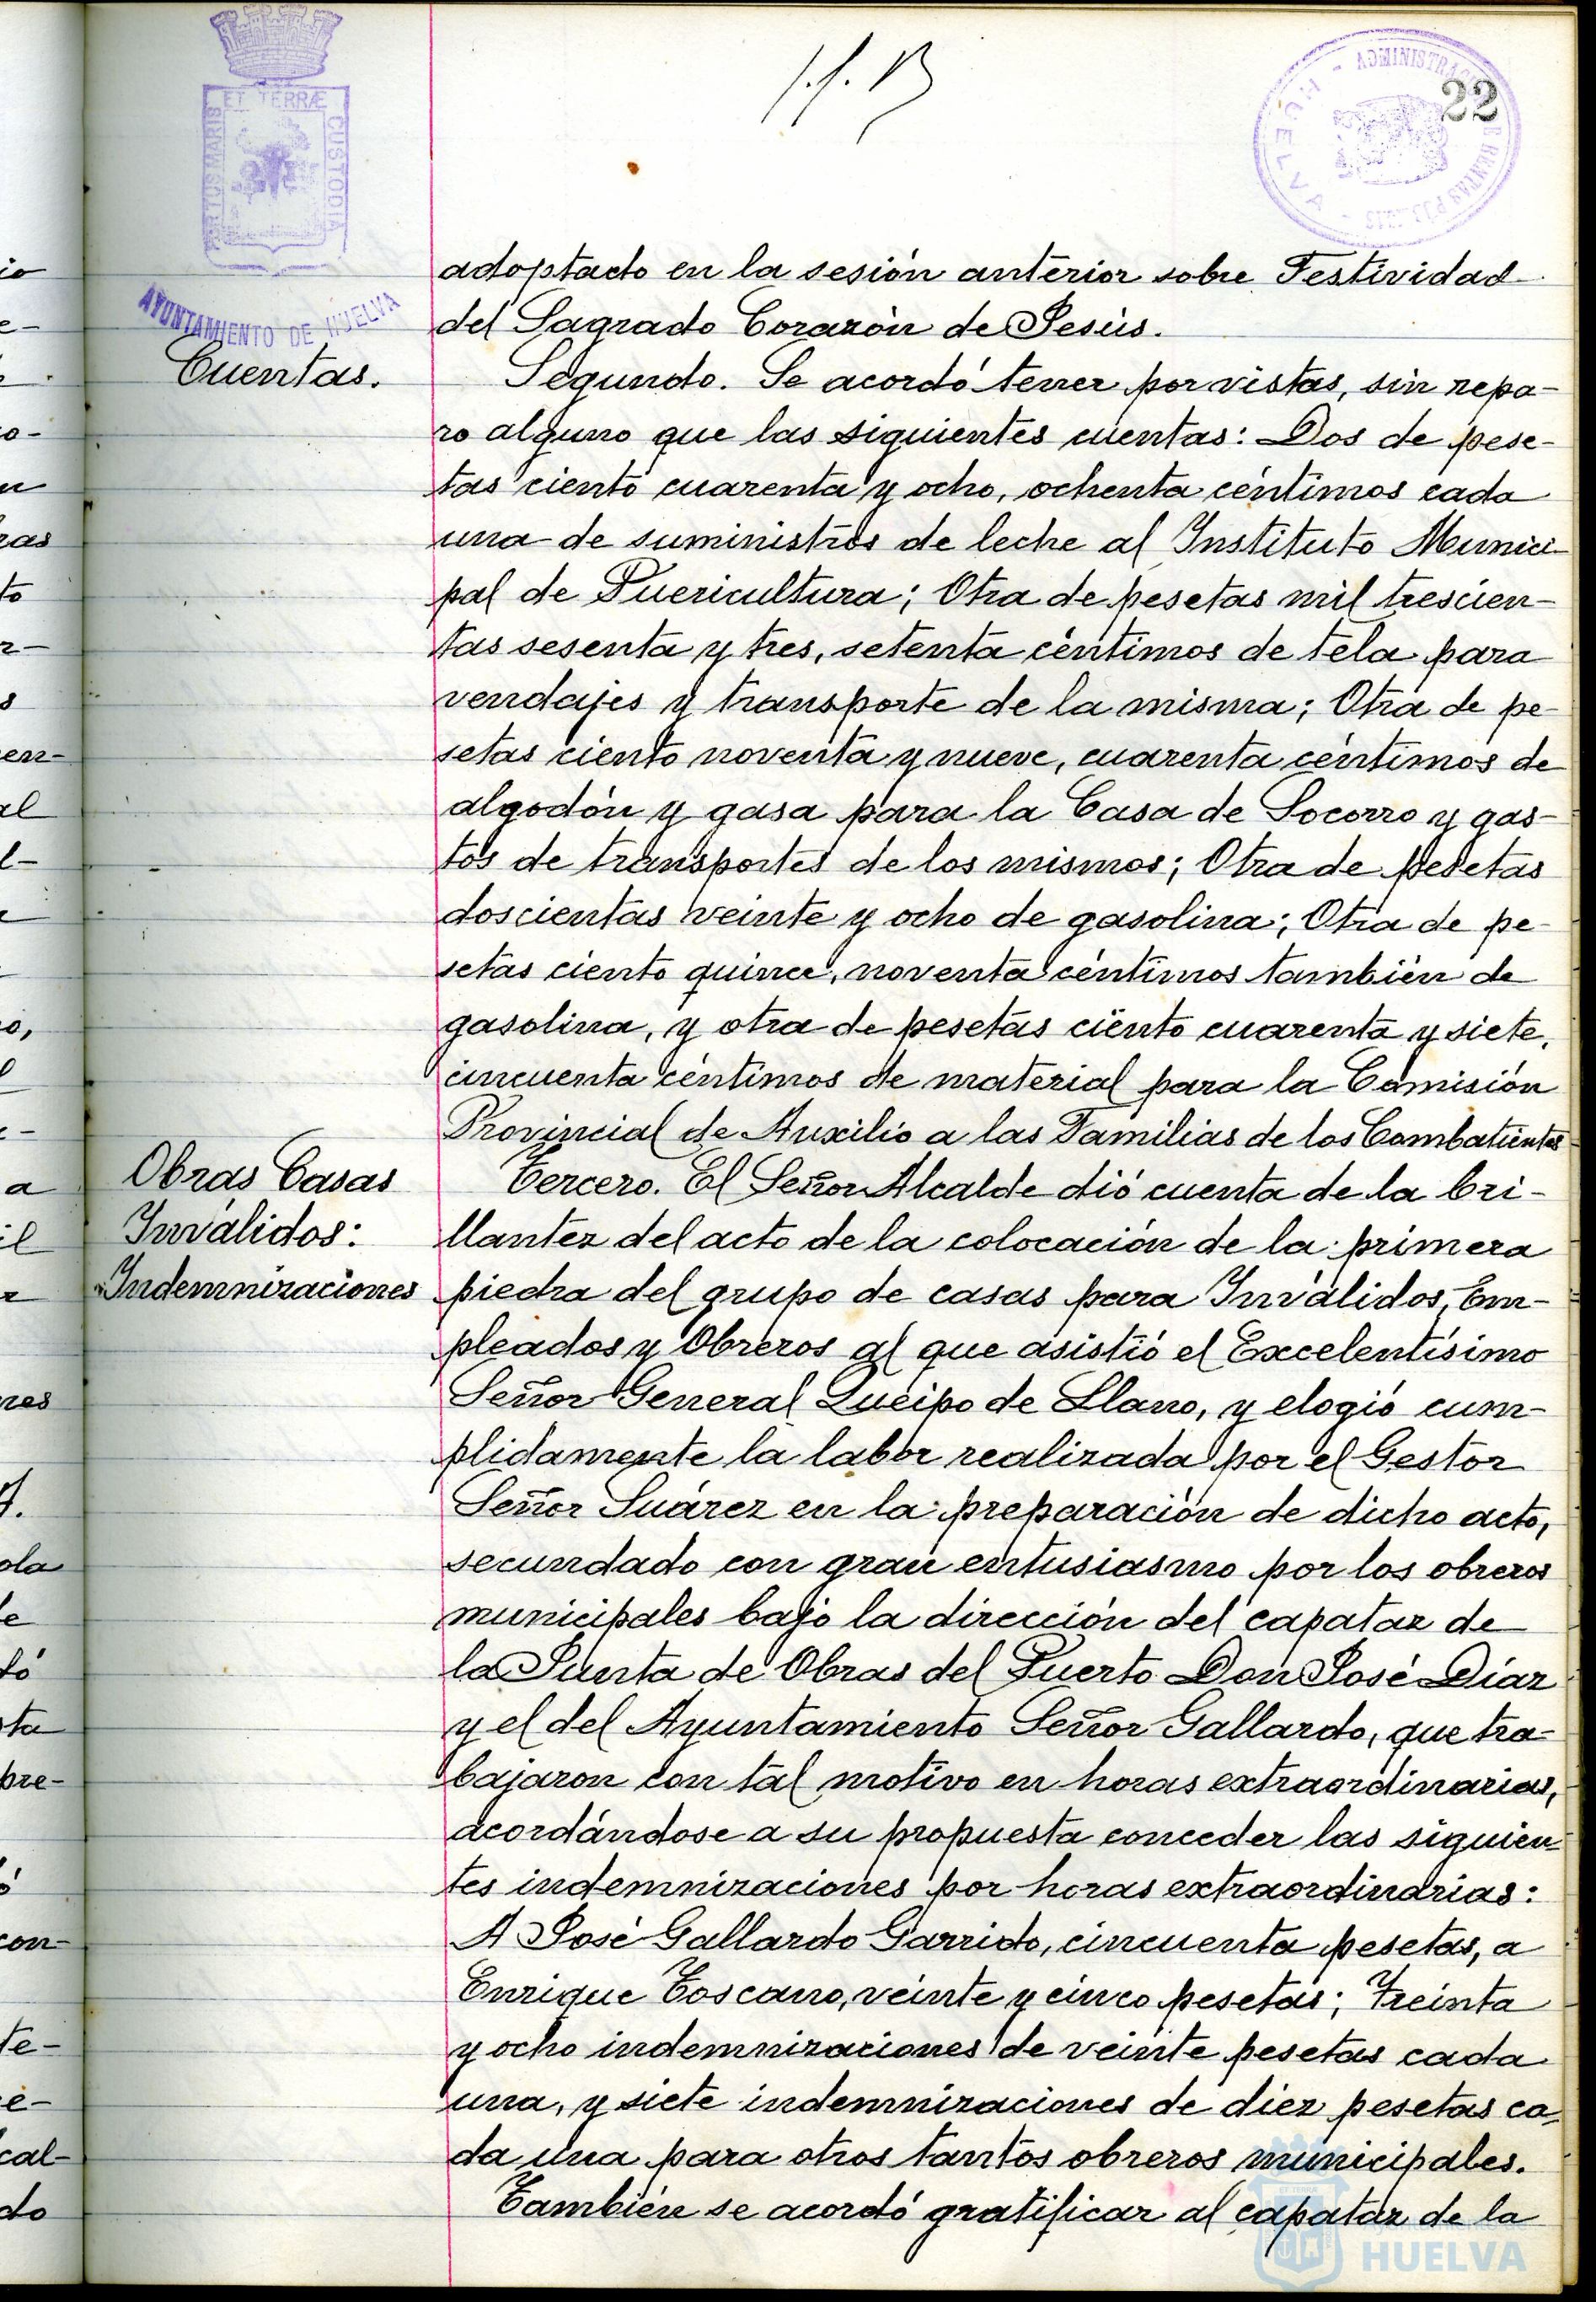 22
ET TERRÆ
PORTUS MARIS
CUSTODIA
AYUNTAMIENTO DE HUELVA
ADMINISTRACION
HUELVA
adoptado en la sesión anterior sobre Festividad
del Sagrado Corazón de Jesús.
Cuentas.
Segundo. Se acordó tener por vistas, sin repa-
ro alguno que las siguientes cuentas: Dos de pese-
tas ciento cuarenta y ocho, ochenta céntimos cada
una de suministros de leche al Instituto Munici-
pal de Puericultura; Otra de pesetas mil trescien-
tas sesenta y tres, setenta céntimos de tela para
vendajes y transporte de la misma; Otra de pe-
setas ciento noventa y nueve, cuarenta céntimos de
algodón y gasa para la Casa de Socorro y gas-
tos de transportes de los mismos; Otra de pesetas
doscientas veinte y ocho de gasolina; Otra de pe-
setas ciento quince, noventa céntimos también de
gasolina, y otra de pesetas ciento cuarenta y siete,
cincuenta céntimos de material para la Comisión
Provincial de Auxilio a las Familias de los Combatientes
Obras Casas
Inválidos:
Indemnizaciones
Tercero. El Señor Alcalde dió cuenta de la bri-
llantez del acto de la colocación de la primera
piedra del grupo de casas para Inválidos, Em-
pleados y Obreros al que asistió el Excelentísimo
Señor General Queipo de Llano, y elogió cum-
plidamente la labor realizada por el Gestor
Señor Suárez en la preparación de dicho acto,
secundado con gran entusiasmo por los obreros
municipales bajo la dirección del capataz de
la Junta de Obras del Puerto Don José Díaz
y el del Ayuntamiento Señor Gallardo, que tra-
bajaron con tal motivo en horas extraordinarias,
acordándose a su propuesta conceder las siguien-
tes indemnizaciones por horas extraordinarias:
A José Gallardo Garrido, cincuenta pesetas, a
Enrique Toscano, veinte y cinco pesetas; Treinta
y ocho indemnizaciones de veinte pesetas cada
una, y siete indemnizaciones de diez pesetas ca-
da una para otros tantos obreros municipales.
También se acordó gratificar al capataz de la
HUELVA